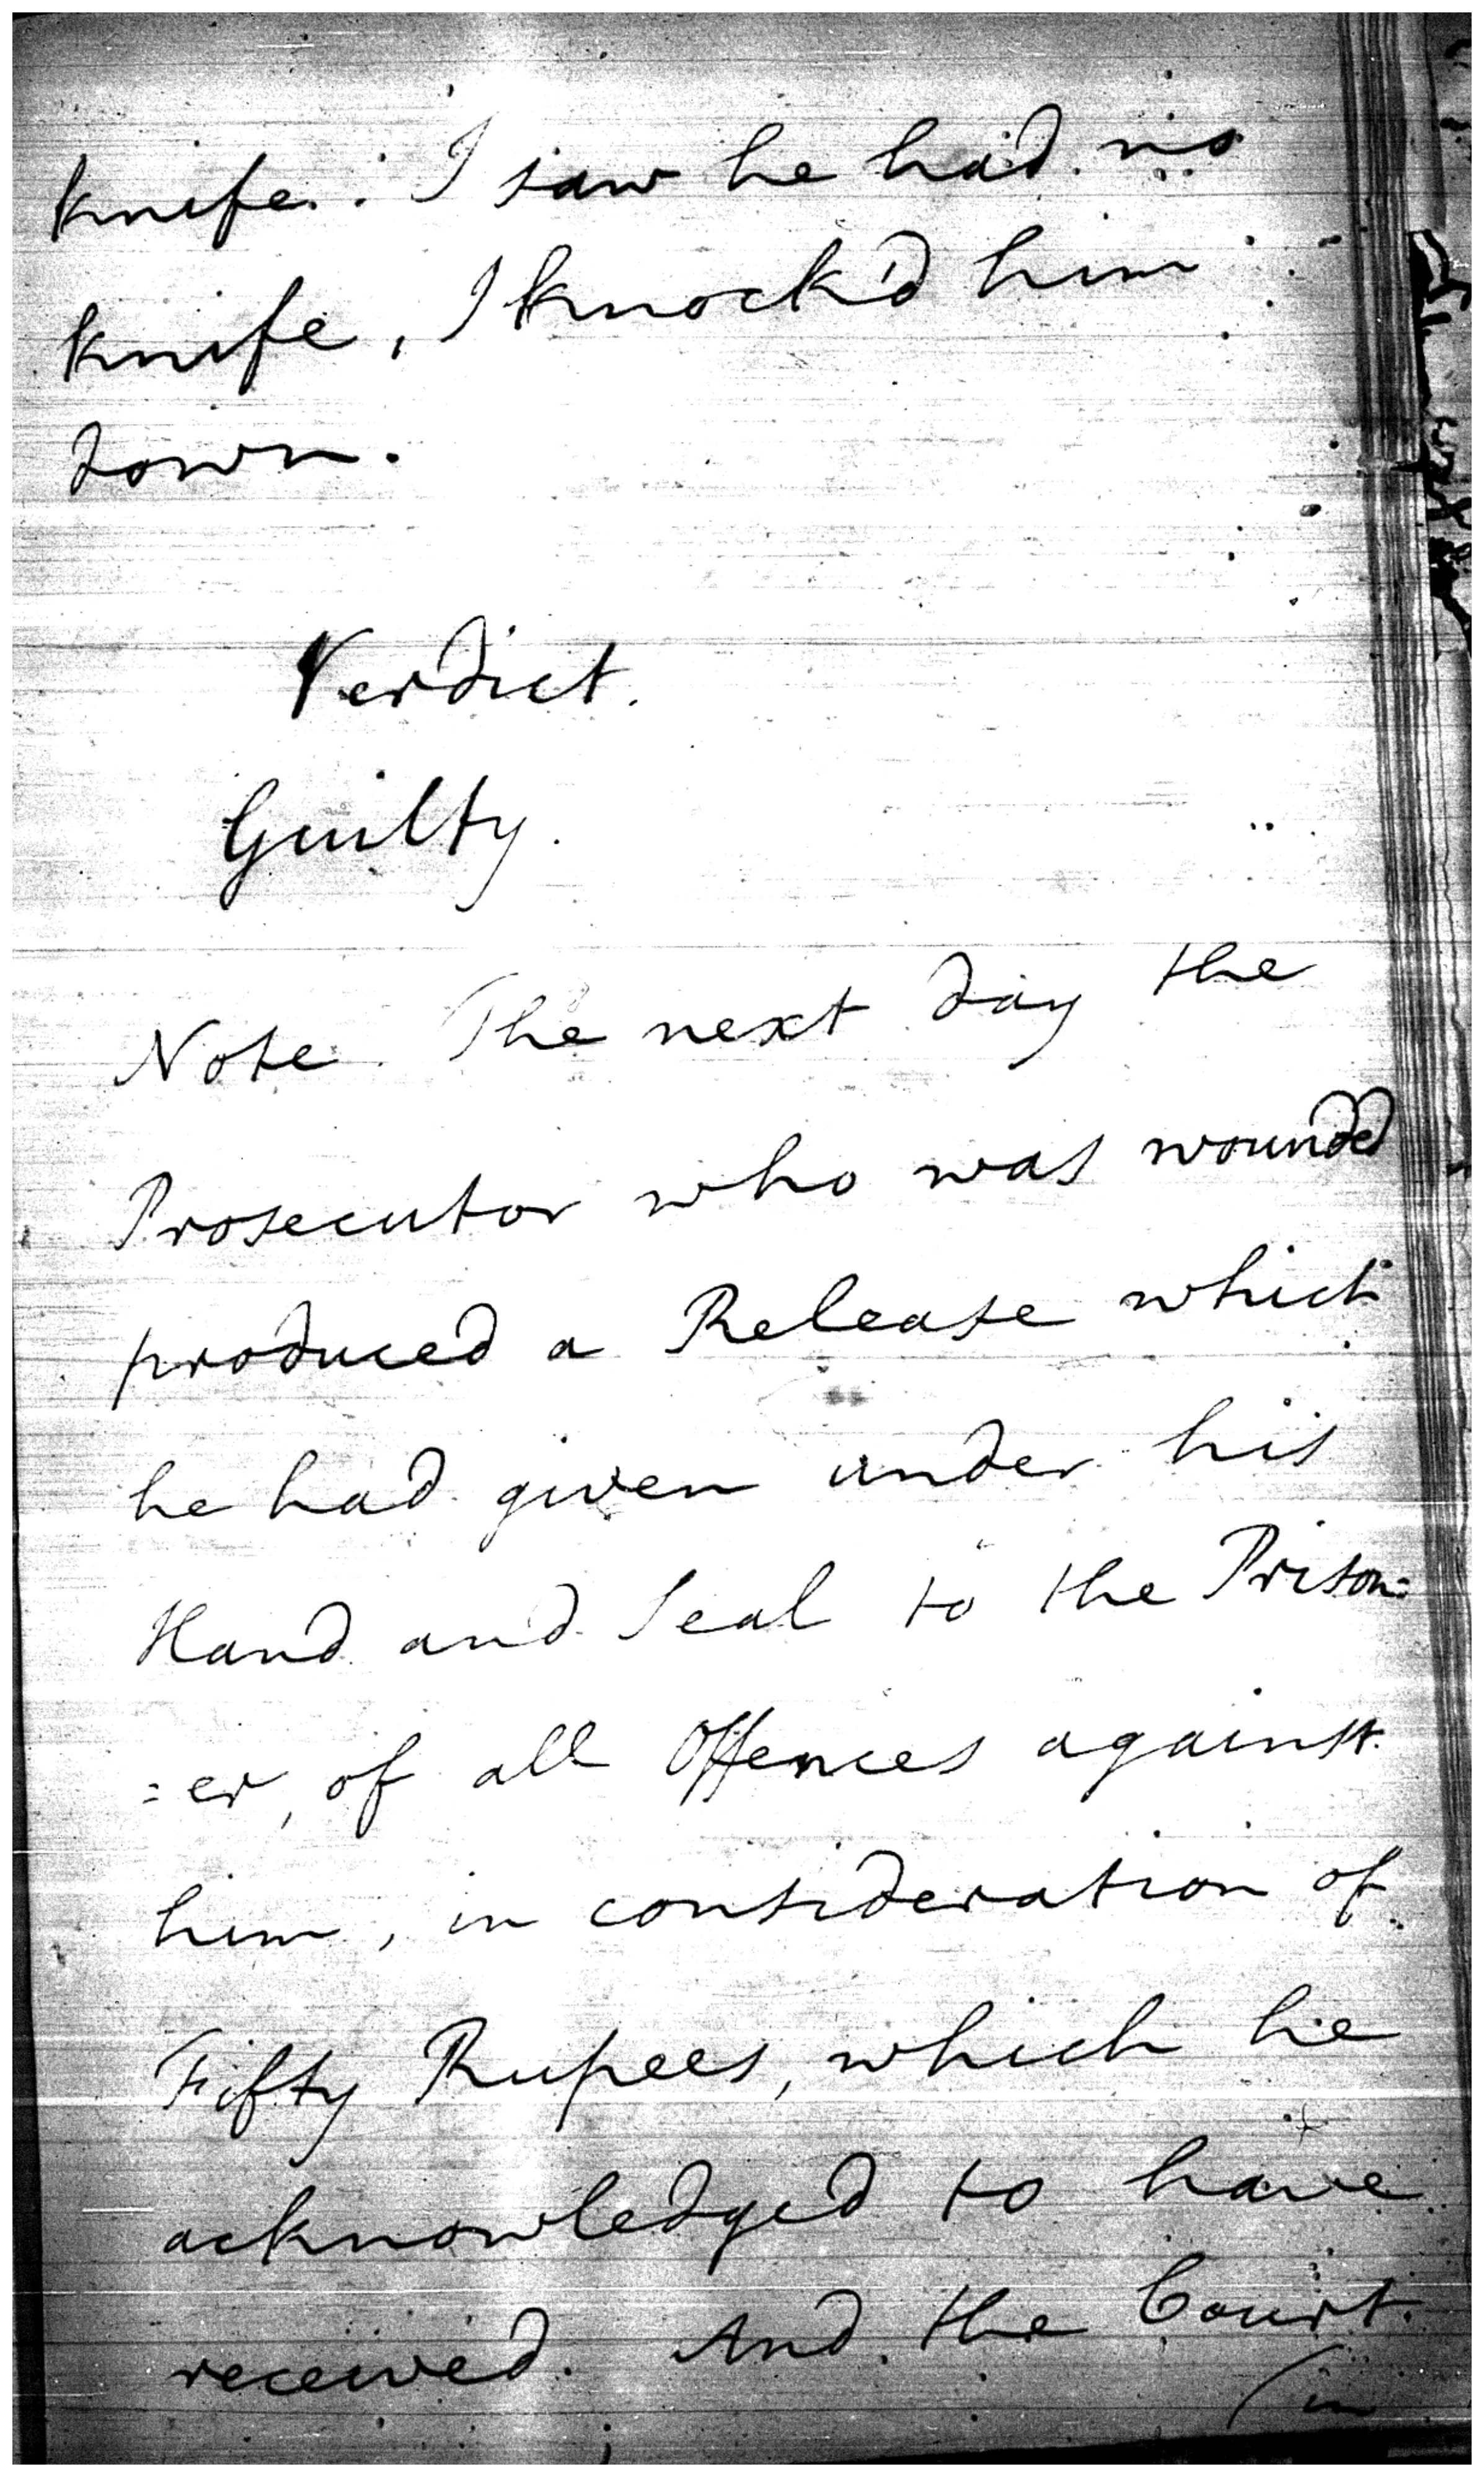 knife. I saw he had no
knife, I knock'd him
down.
Verdict.
Guilty.
Note. The next day the
Prosecutor who was wounded
produced a Release which
he had given under his
Hand and Seal to the Prison=
=er, of all Offences against
him, in consideration of
Fifty Rupees, which he
acknowledged to have
received. And the Court
(in